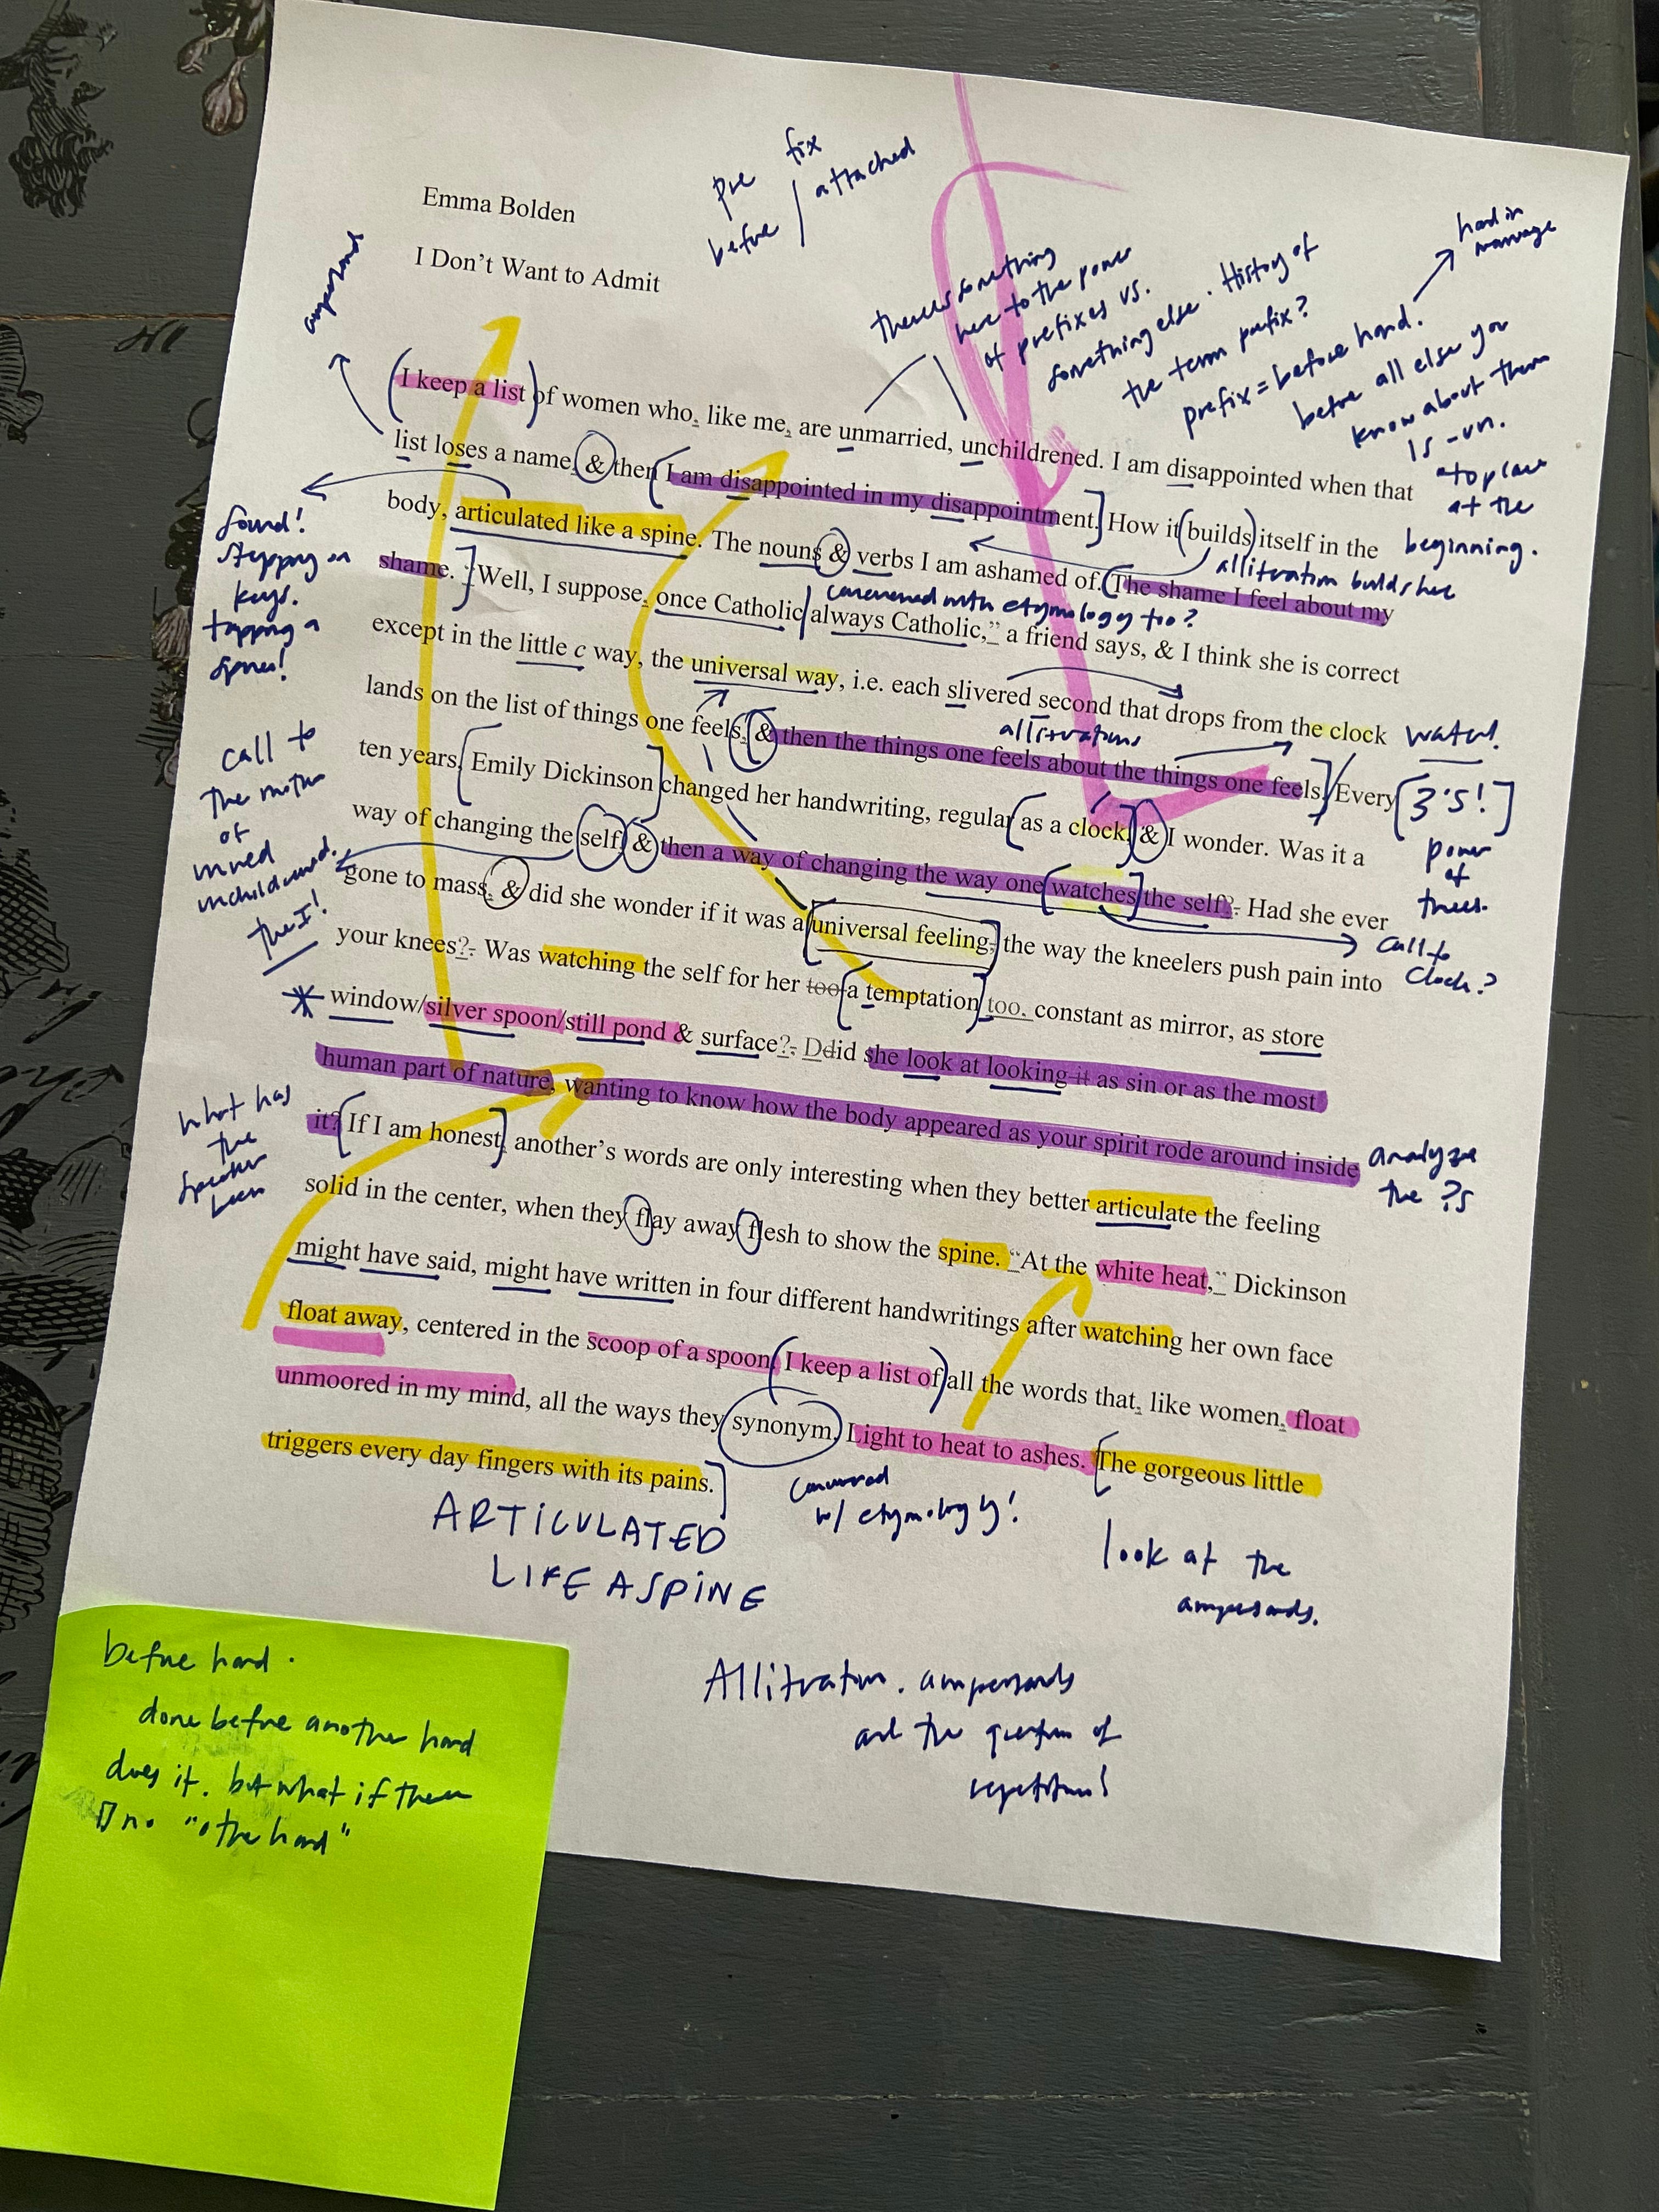 pre fix
before / attached
Emma Bolden
I Don't Want to Admit
ampersands
there's something
here to the power
of prefixes vs.
something else. History of
the term prefix?
prefix = before hand.
hand in
marriage
before all else you
know about them
is -un.
a place
at the
beginning.
I keep a list of women who, like me, are unmarried, unchildrened. I am disappointed when that
list loses a name, & then I am disappointed in my disappointment. How it builds itself in the
body, articulated like a spine. The nouns & verbs I am ashamed of. The shame I feel about my
shame. "Well, I suppose, once Catholic always Catholic," a friend says, & I think she is correct
except in the little c way, the universal way, i.e. each slivered second that drops from the clock
lands on the list of things one feels, & then the things one feels about the things one feels. Every
ten years, Emily Dickinson changed her handwriting, regular as a clock, & I wonder. Was it a
way of changing the self, & then a way of changing the way one watches the self?. Had she ever
gone to mass, & did she wonder if it was a universal feeling, the way the kneelers push pain into
your knees?. Was watching the self for her too a temptation, too, constant as mirror, as store
window/silver spoon/still pond & surface?. Ddid she look at looking it as sin or as the most
human part of nature, wanting to know how the body appeared as your spirit rode around inside
it? If I am honest, another's words are only interesting when they better articulate the feeling
solid in the center, when they flay away flesh to show the spine. "At the white heat," Dickinson
might have said, might have written in four different handwritings after watching her own face
float away, centered in the scoop of a spoon. I keep a list of all the words that, like women, float
unmoored in my mind, all the ways they synonym. Light to heat to ashes. The gorgeous little
triggers every day fingers with its pains.
alliteration builds here
concerned with etymology too?
alliterations
sound!
stepping on
keys.
tapping a
spine!
call to
the
of
the I!
water!
3's!
power
of
threes.
call to
clock?
what has
the
speaker
been
analyze
the ?s
concerned
w/ etymology!
ARTICULATED
LIKE A SPINE
look at the
ampersands.
Alliteration. ampersands
and the question of
repetition!
before hand.
done before another hand
does it. but what if there
is no "other hand"